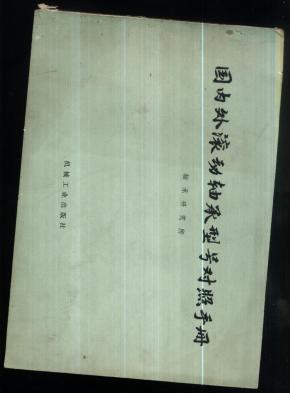 国内外滚动轴承型号对照手册
轴承研究所
机械工业出版社